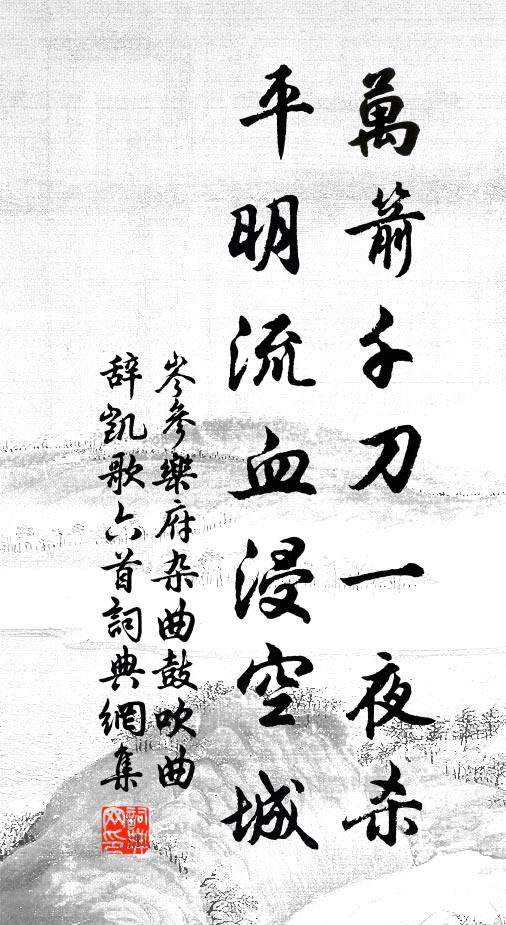 萬箭千刀一夜杀
平明流血浸空城
岑參樂府杂曲鼓吹曲
辞凱歌六首詞典網集